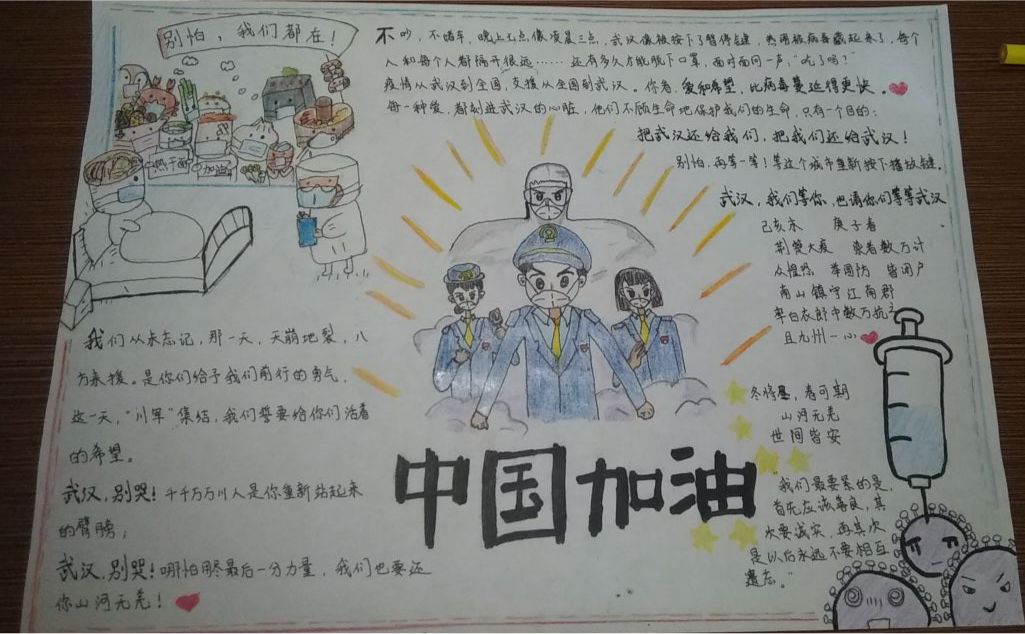 别怕，我们都在！
热干面
加油
不吵，不堵车，晚上七点像凌晨三点，武汉像被按下了暂停键，热闹被病毒藏起来了，每个
人和每个人都隔开很远……还有多久才能脱下口罩，面对面问一声，"吃了吗？
疫情从武汉到全国，支援从全国到武汉。你看，爱和希望，比病毒蔓延得更快。
每一种爱，都刻进武汉的心脏，他们不顾生命地保护我们的生命，只有一个目的：
把武汉还给我们，把我们还给武汉！
别怕，再等一等！等这个城市重新按下播放键。
武汉，我们等你，也请你们等等武汉
己亥末 庚子春
荆楚大疫 染者数万计
众惶恐 举国防 皆闭户
南山镇守江南郡
率白衣郎中数万抗之
且九州一心
冬将尽，春可期
山河无恙
世间皆安
"我们最要紧的是，
首先应该善良，其
次要诚实，再其次
是以后永远不要相互
遗忘。"
我们从未忘记，那一天，天崩地裂，八
方来援。是你们给予我们前行的勇气，
这一天，"川军"集结，我们誓要给你们活着
的希望。
武汉，别哭！千千万万川人是你重新站起来
的臂膀；
武汉，别哭！哪怕用尽最后一分力量，我们也要还
你山河无恙！
中国加油